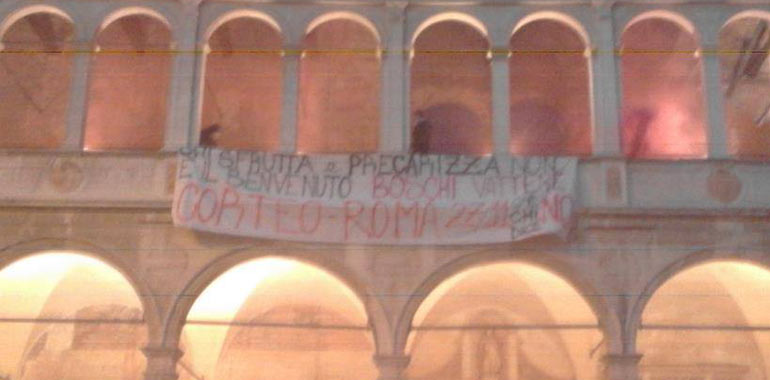 CHI SFRUTTA e PRECARIZZA NON
E IL BENVENUTO BOSCHI VATTENE
CORTEO-ROMA 27.11
CHI
DICE
NO